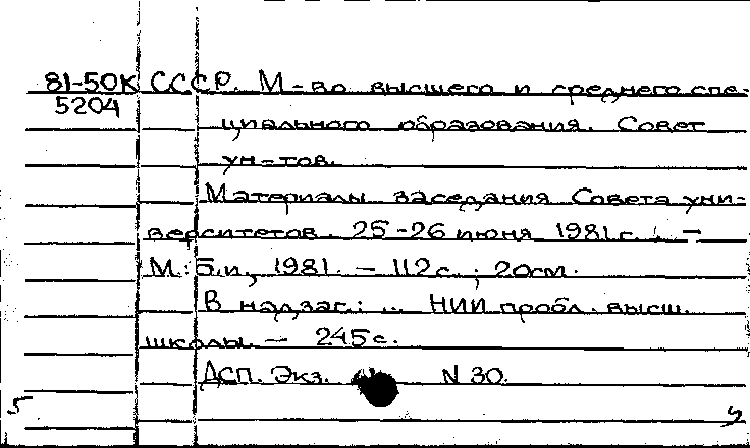 81-50К СССР. М-во высшего и среднего спе-
5204 циального образования. Совет
ун-тов.
Материалы заседания Совета уни-
верситетов. 25-26 июня 1981 г. -
М.: Б.и., 1981. - 112 с.; 20 см.
В надзаг.: ... НИИ пробл. высш.
школы. - 245 с.
ДСП. Экз. N 30.
5